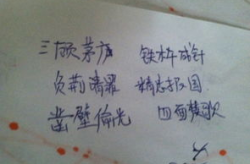 三顾茅庐 铁杵成针
负荆请罪 精忠报国
凿壁偷光 四面楚歌